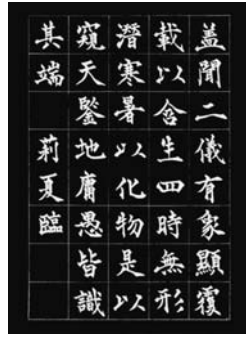 盖聞二儀有象顯覆
載以含生四時無形
潛寒暑以化物是以
窺天鑒地庸愚皆識
其端
莉夏臨